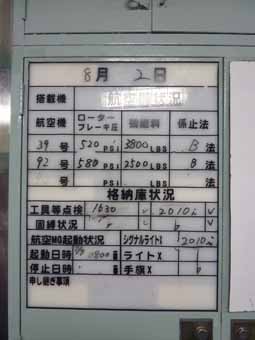 8月 2日
搭載機 航空機状況
航空機 ローターブレーキ圧 燃料 係止法
39号 520 PSi 3800 LBS B 法
92号 580 PSi 2500 LBS B 法
号 PSi LBS 法
格納庫状況
工具等点検 1630 √ 2010i
固縛状況
航空MG起動状況 シグナルライトX 2010i
起動日時 0800 ライトX
停止日時 手旗X
申し継ぎ事項